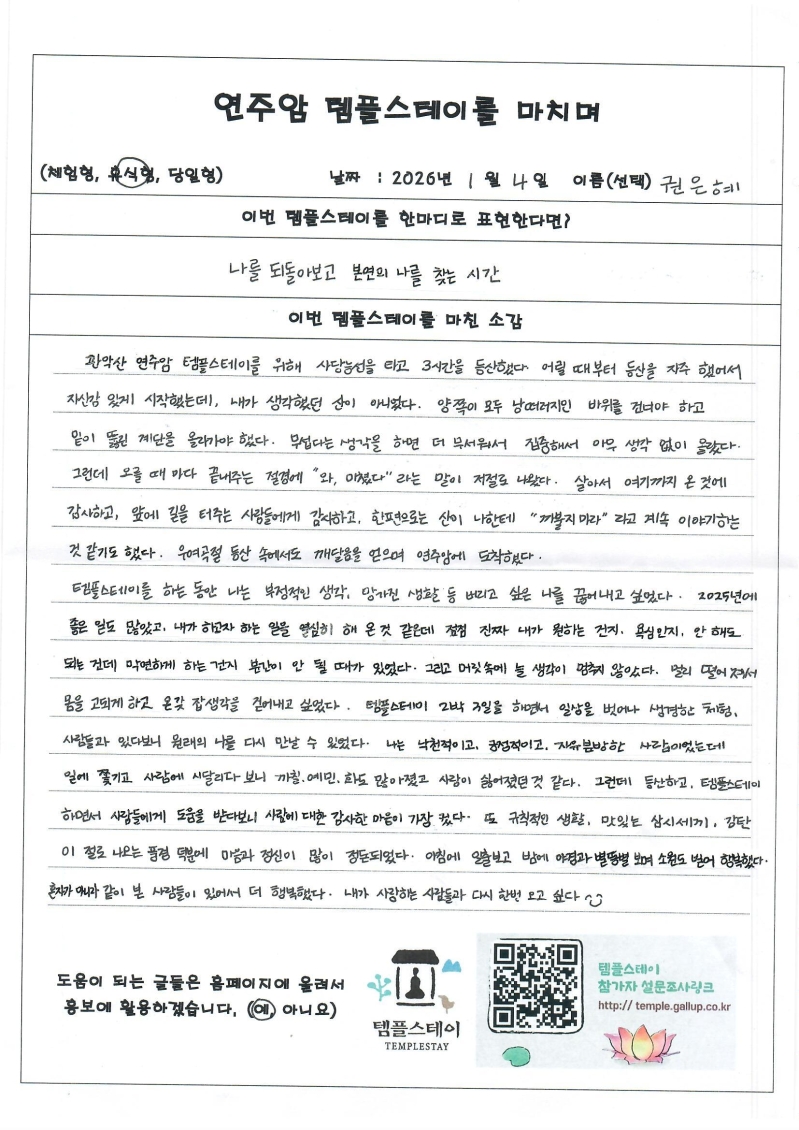 연주암 템플스테이를 마치며
(체험형, 휴식형, 당일형) 날짜 : 2026년 1월 4일 이름(선택) 권은혜
이번 템플스테이를 한마디로 표현한다면?
나를 되돌아보고 본연의 나를 찾는 시간
이번 템플스테이를 마친 소감
관악산 연주암 템플스테이를 위해 사당능선을 타고 3시간을 등산했다. 어릴 때부터 등산을 자주 했어서
자신감 있게 시작했는데, 내가 생각했던 산이 아니었다. 양쪽이 모두 낭떠러지인 바위를 건너야 하고
밑이 뚫린 계단을 올라가야 했다. 무섭다는 생각을 하면 더 무서워서 집중해서 아무 생각 없이 올랐다.
그런데 오를 때 마다 끝내주는 절경에 "와, 미쳤다"라는 말이 저절로 나왔다. 살아서 여기까지 온 것에
감사하고, 앞에 길을 터주는 사람들에게 감사하고, 한편으로는 산이 나한테 "까불지마라"라고 계속 이야기하는
것 같기도 했다. 우여곡절 등산 속에서도 깨달음을 얻으며 연주암에 도착했다.
템플스테이를 하는 동안 나는 부정적인 생각, 망가진 생활 등 버리고 싶은 나를 끊어내고 싶었다. 2025년에
좋은 일도 많았고, 내가 하고자 하는 일을 열심히 해 온 것 같은데 점점 진짜 내가 원하는 건지, 욕심인지, 안 해도
되는 건데 막연하게 하는 건지 분간이 안 될 때가 있었다. 그리고 머릿속에 늘 생각이 멈추지 않았다. 멀리 떨어져서
몸을 고되게 하고 온갖 잡생각을 걷어내고 싶었다. 템플스테이 2박 3일을 하면서 일상을 벗어나 생경한 체험,
사람들과 있다보니 원래의 나를 다시 만날 수 있었다. 나는 낙천적이고, 긍정적이고, 자유분방한 사람이었는데
일에 쫓기고 사람에 시달리다 보니 까칠, 예민, 화도 많아졌고 사람이 싫어졌던 것 같다. 그런데 등산하고, 템플스테이
하면서 사람들에게 도움을 받다보니 사람에 대한 감사한 마음이 가장 컸다. 또 규칙적인 생활, 맛있는 삼시세끼, 감탄
이 절로 나오는 풍경 덕분에 마음과 정신이 많이 정돈되었다. 아침에 일출보고 밤에 야경과 별똥별 보며 소원도 빌어 행복했다.
혼자가 아니라 같이 본 사람들이 있어서 더 행복했다. 내가 사랑하는 사람들과 다시 한번 오고 싶다
도움이 되는 글들은 홈페이지에 올려서
홍보에 활용하겠습니다. (예, 아니요)
템플스테이
TEMPLESTAY
템플스테이
참가자 설문조사링크
http:// temple.gallup.co.kr